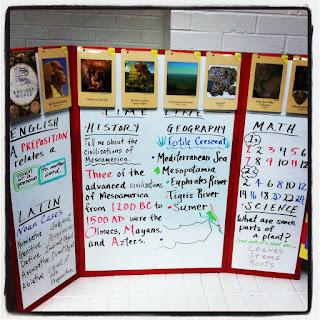 ANCIENT
WORLD
TIME LINE
ENGLISH
A PREPOSITION
relates a
noun or
pronoun
to another word
LATIN
Noun Cases
Nominative Subject
Genitive Possessive
Dative
Accusative
Ablative Object of the
Preposition
HISTORY
Tell me about the
civilizations of
Mesoamerica.
Three of the
advanced civilizations
of Mesoamerica
from 1200 BC to
1500 AD were the
Olmecs, Mayans,
and Aztecs.
GEOGRAPHY
Fertile Crescent
• Mediterranean Sea
• Mesopotamia
• Euphrates River
• Tigris River
• Sumer
MATH
1s
1 2 3 4 5 6
7 8 9 10 11 12
2s
2 4 6 8 10 12
14 16 18 20 22 24
SCIENCE
What are some
parts of
a plant?
Some parts of a plant are...
Leaves
Stems
Roots